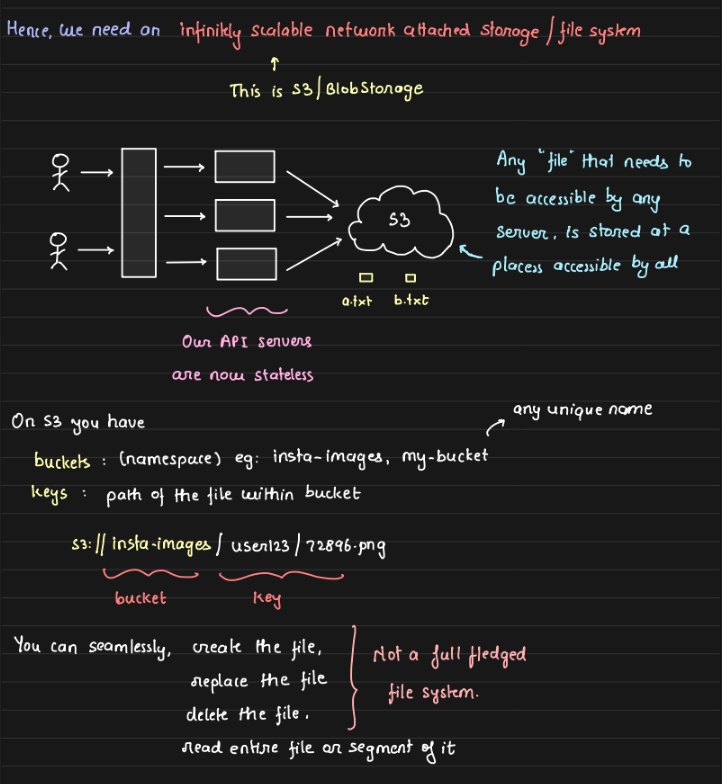 Hence, we need an infinitely scalable network attached storage / file system
This is S3/BlobStorage
Any "file" that needs to
be accessible by any
server, is stored at a
places accessible by all
S3
a.txt b.txt
Our API servers
are now stateless
On S3 you have
any unique name
buckets : (namespace) eg: insta-images, my-bucket
keys : path of the file within bucket
S3:// insta-images / user123 / 72896.png
bucket key
You can seamlessly, create the file,
replace the file
delete the file,
read entire file or segment of it
Not a full fledged
file system.